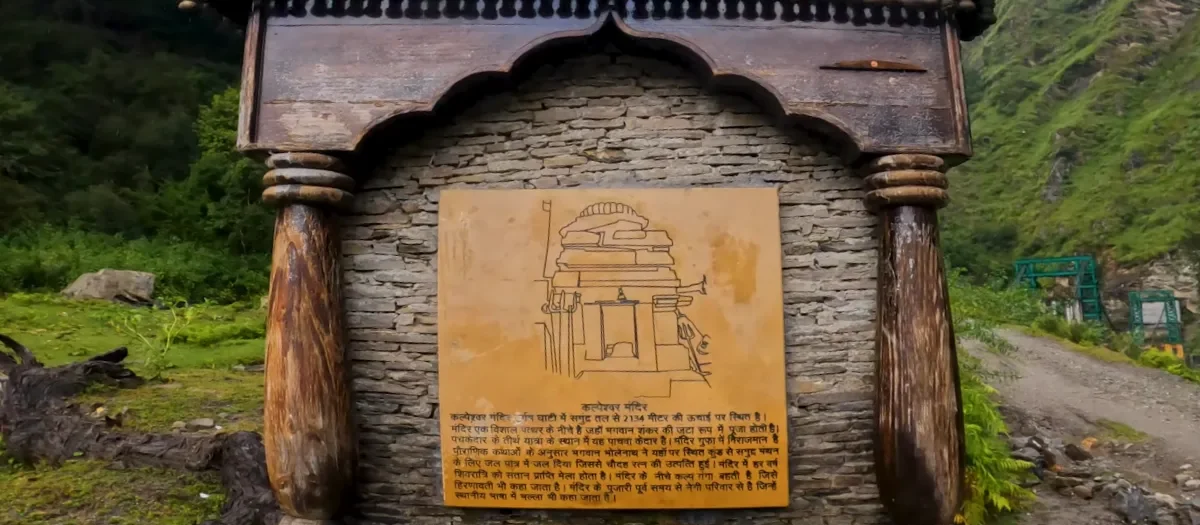 कल्पेश्वर मंदिर
कल्पेश्वर मंदिर घाटी में समुद्र तल से 2134 मीटर की ऊंचाई पर स्थित है।
मंदिर एक विशाल पत्थर के नीचे है जहाँ भगवान शंकर की जटा रूप में पूजा होती है।
पंचकेदार के तीर्थ यात्रा के स्थान में यह पांचवा केदार है। मंदिर गुफा में विराजमान है
पौराणिक कथाओं के अनुसार भगवान भोलेनाथ ने यहाँ पर स्थित कुण्ड से समुद्र मंथन
के लिए जल पात्र में जल दिया जिससे चौदह रत्न की उत्पति हुई। मंदिर में हर वर्ष
शिवरात्रि को संतान प्राप्ति मेला होता है। मंदिर के नीचे कल्प गंगा बहती है जिसे
हिरणावती भी कहा जाता है। मंदिर के पुजारी पूर्व समय से नेगी परिवार से है जिन्हें
स्थानीय भाषा में भल्ला भी कहा जाता है।